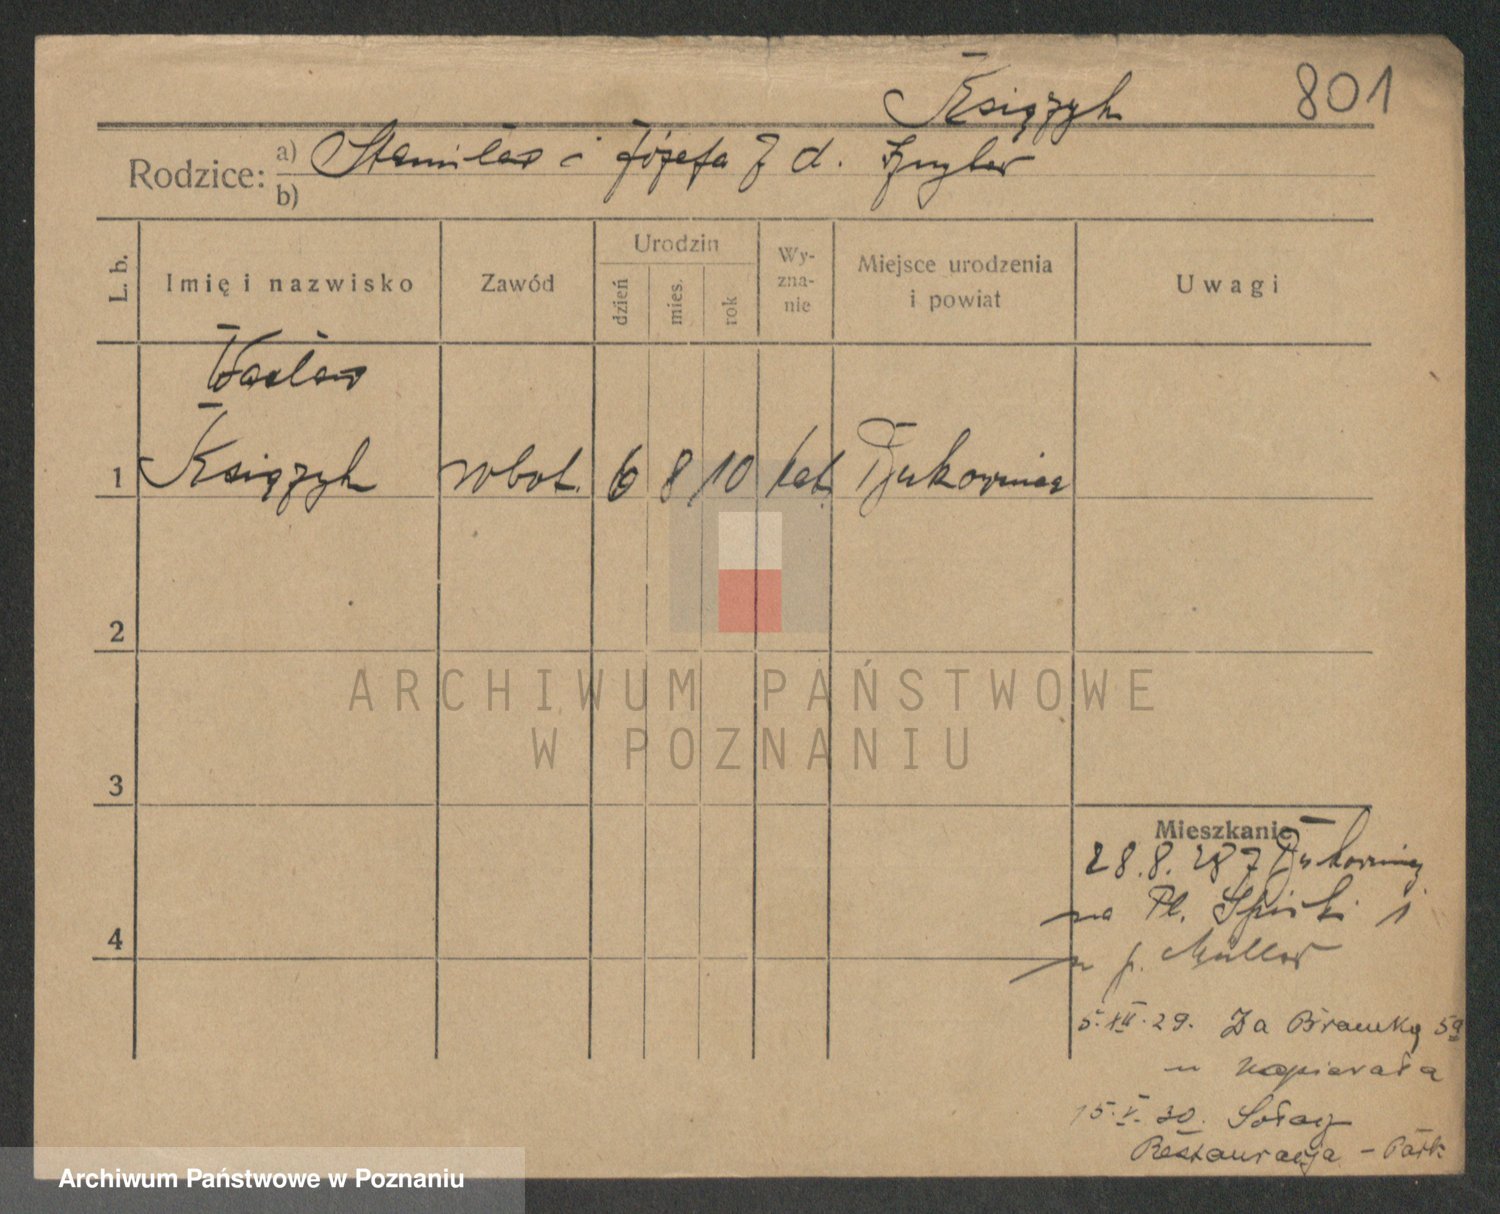 801
Księżyk
Rodzice: a) Stanisław i Józefa z d.
b)
L. b.
Imię i nazwisko
Zawód
Urodzin
dzień
mies.
rok
Wy-
zna-
nie
Miejsce urodzenia
i powiat
Uwagi
Wacław
1 Księżyk robot. 6 8 10 kat.
2
3
4
ARCHIWUM PAŃSTWOWE
W POZNANIU
Mieszkanie
28.8.28 z
na Pl. 1
u p. Müller
5.XII.29. Za Bramką 5a
u Kopierała
15.V.30. Sołacz
Restauracja - Park
Archiwum Państwowe w Poznaniu